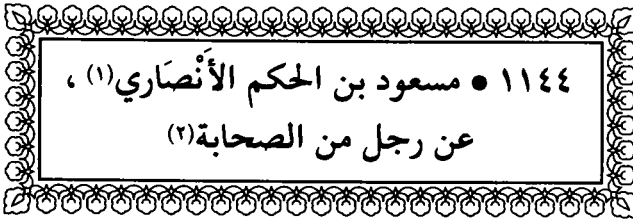 ١١٤٤ • مسعود بن الحكم الأَنْصَاري(١) ،
عن رجل من الصحابة(٢)